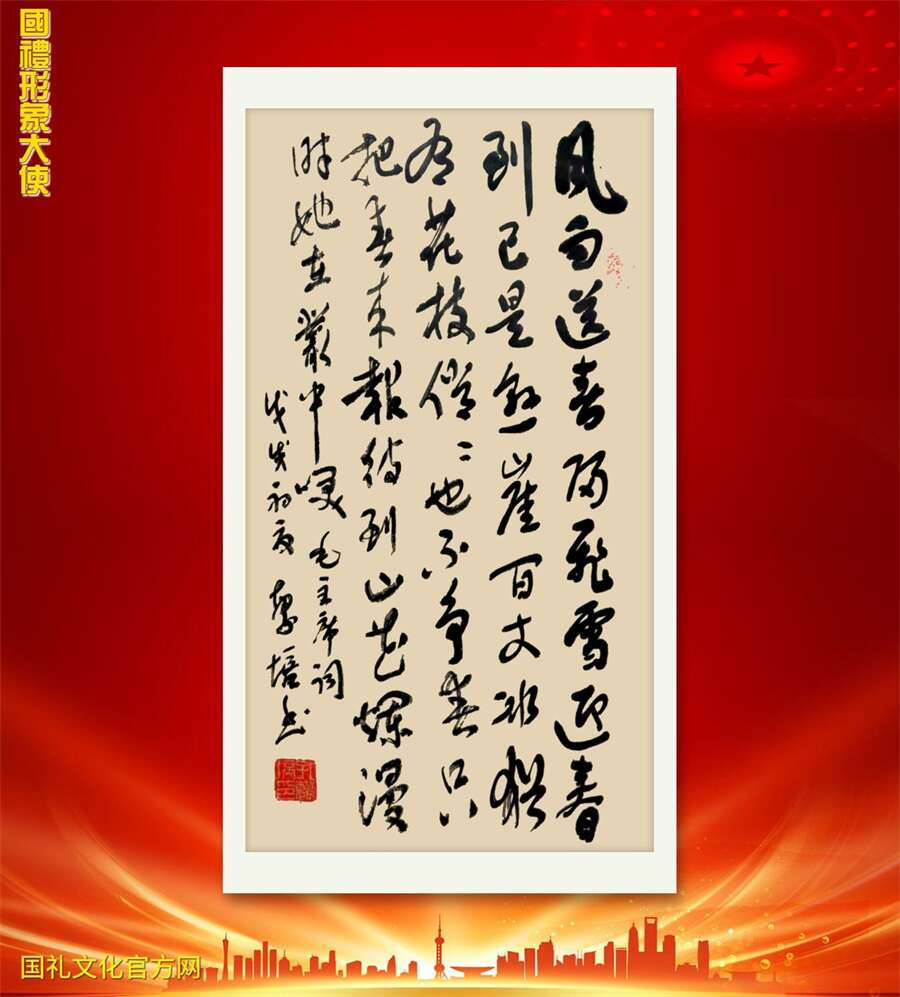 國禮形象大使
風雨送春歸飛雪迎春
到已是懸崖百丈冰猶
有花枝俏〻也不争春只
把春来報待到山花爛漫
時她在叢中咲 毛主席词
戊戌初夏 培书
国礼文化官方网